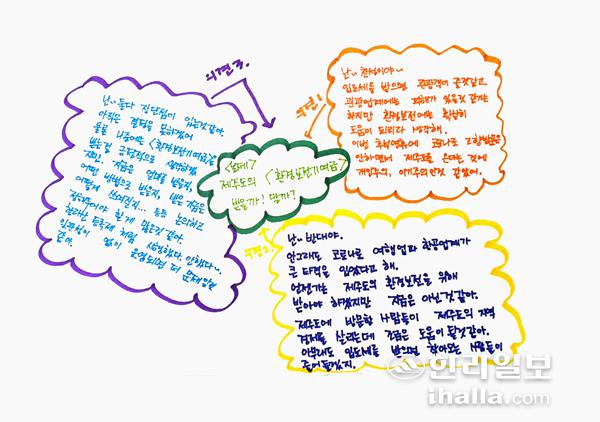 의견 3.
난~ 둘다 장단점이 있는것같아
아직은 결정을 못하겠어
물을 나중에는 <환경보전기여금>을
받는걸 긍정적으로 생각해봤
지만, 지금은 언제 받을지,
어떤 방법으로 받을지, 받은 지금은
어떻게 쓰여질지... 등을 논의하고
정해져야 할게 많은것 같아.
처럼 시행했다 안했다~
없이 운영되면 더 문제일것
같아.
의견 1.
난~ 찬성이야~
입도세를 받으면 관광객이 줄것같고
관광업계에는 피해가 있을것 같기는
하지만 환경보전에는 확실히
도움이 되리라 생각해.
이번 추석연휴에 코로나로 고향방문은
안하면서 제주도로 온다는 것에
개인주의, 이기주의인것 같았어.
<논제>
제주도의 <환경보전기여금>
받을까? 말까?
의견 2.
난~ 반대야.
안그래도 코로나로 여행업과 항공업계가
큰 타격을 입었다고 해.
언젠가는 제주도의 환경보전을 위해
받아야 하겠지만 지금은 아닌것 같아.
제주도에 방문한 사람들이 제주도의 지역
경제를 살리는데 조금은 도움이 될것같아.
아무래도 입도세를 받으면 찾아오는 사람들이
줄어들겠지.
한라일보
ihalla.com